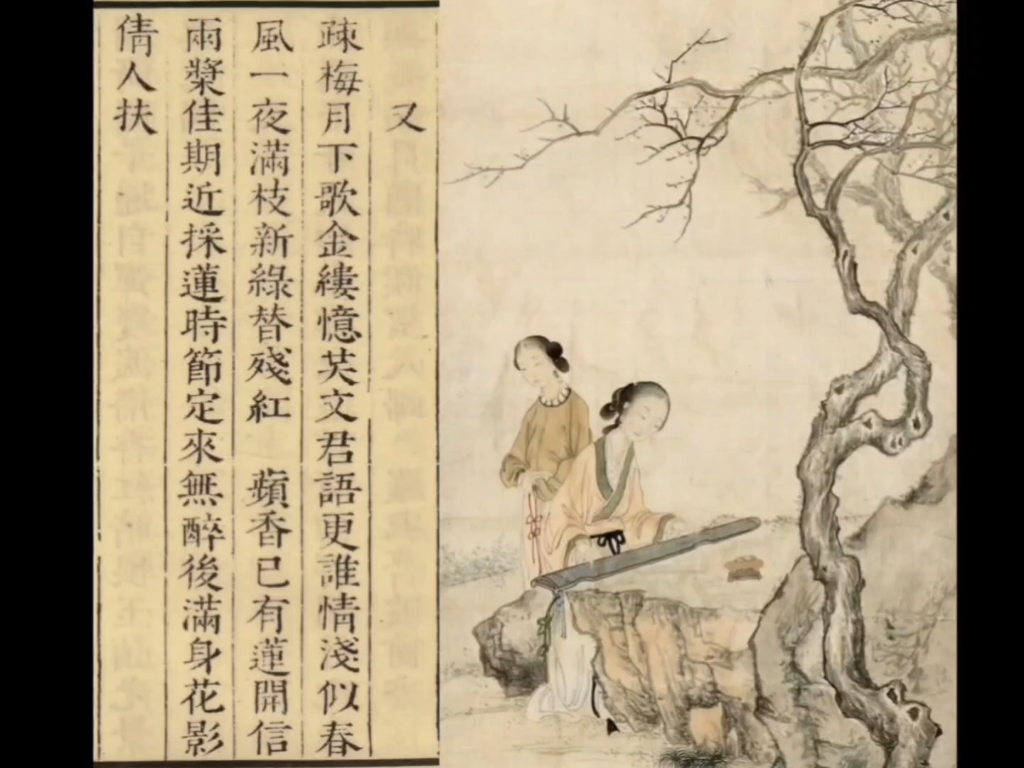 又
疎梅月下歌金縷憶共文君語更誰情淺似春
風一夜滿枝新綠替殘紅　蘋香已有蓮開信
兩槳佳期近採蓮時節定來無醉後滿身花影
倩人扶